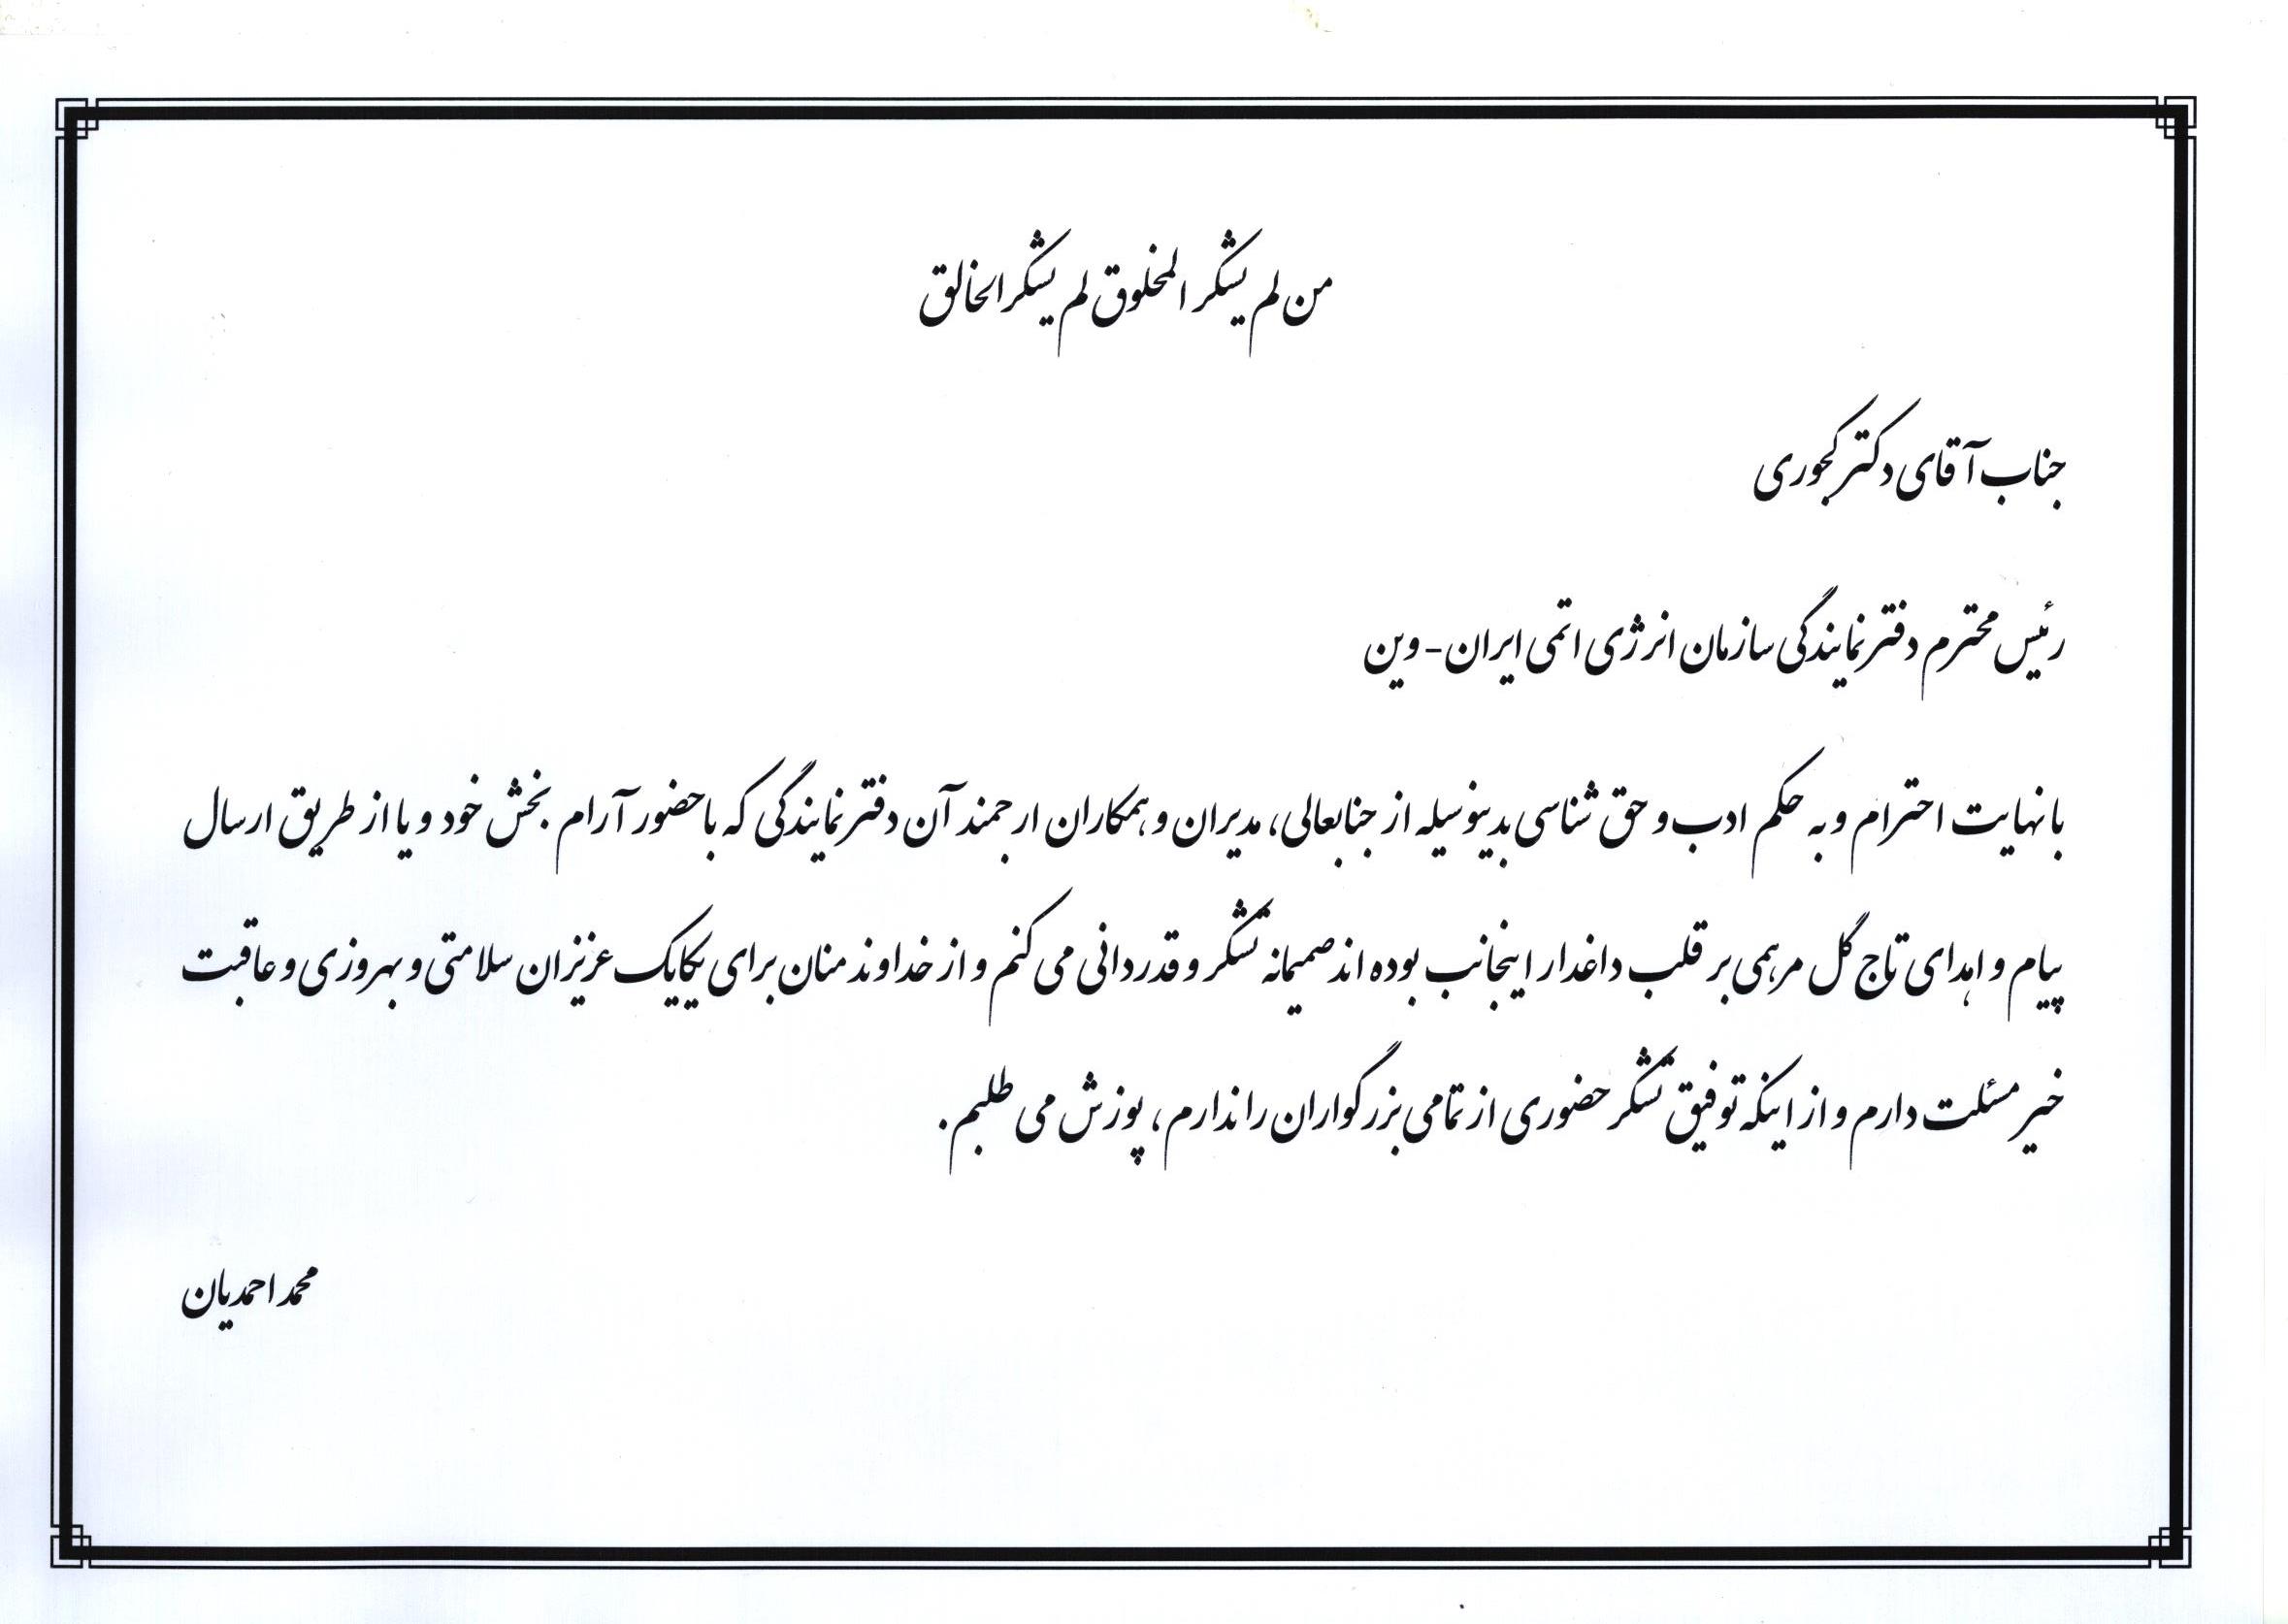 من لم یشکر المخلوق لم یشکر الخالق
جناب آقای دکتر کجوری
رئیس محترم دفتر نمایندگی سازمان انرژی اتمی ایران - وین
با نهایت احترام و به حکم ادب و حق شناسی بدینوسیله از جنابعالی، مدیران و همکاران ارجمند آن دفتر نمایندگی که با حضور آرام بخش خود و یا از طریق ارسال
پیام و اهدای تاج گل مرهمی بر قلب داغدار اینجانب بوده اند صمیمانه تشکر و قدردانی می کنم و از خداوند منان برای یکایک عزیزان سلامتی و بهروزی و عاقبت
خیر مسئلت دارم و از اینکه توفیق تشکر حضوری از تمامی بزرگواران را ندارم، پوزش می طلبم.
محمد احمدیان